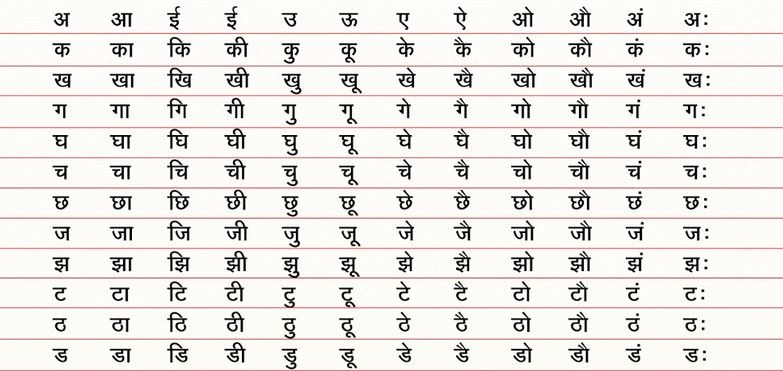 अ आ ई ई उ ऊ ए ऐ ओ औ अं अः
क का कि की कु कू के कै को कौ कं कः
ख खा खि खी खु खू खे खै खो खौ खं खः
ग गा गि गी गु गू गे गै गो गौ गं गः
घ घा घि घी घु घू घे घै घो घौ घं घः
च चा चि ची चु चू चे चै चो चौ चं चः
छ छा छि छी छु छू छे छै छो छौ छं छः
ज जा जि जी जु जू जे जै जो जौ जं जः
झ झा झि झी झु झू झे झै झो झौ झं झः
ट टा टि टी टु टू टे टै टो टौ टं टः
ठ ठा ठि ठी ठु ठू ठे ठै ठो ठौ ठं ठः
ड डा डि डी डु डू डे डै डो डौ डं डः